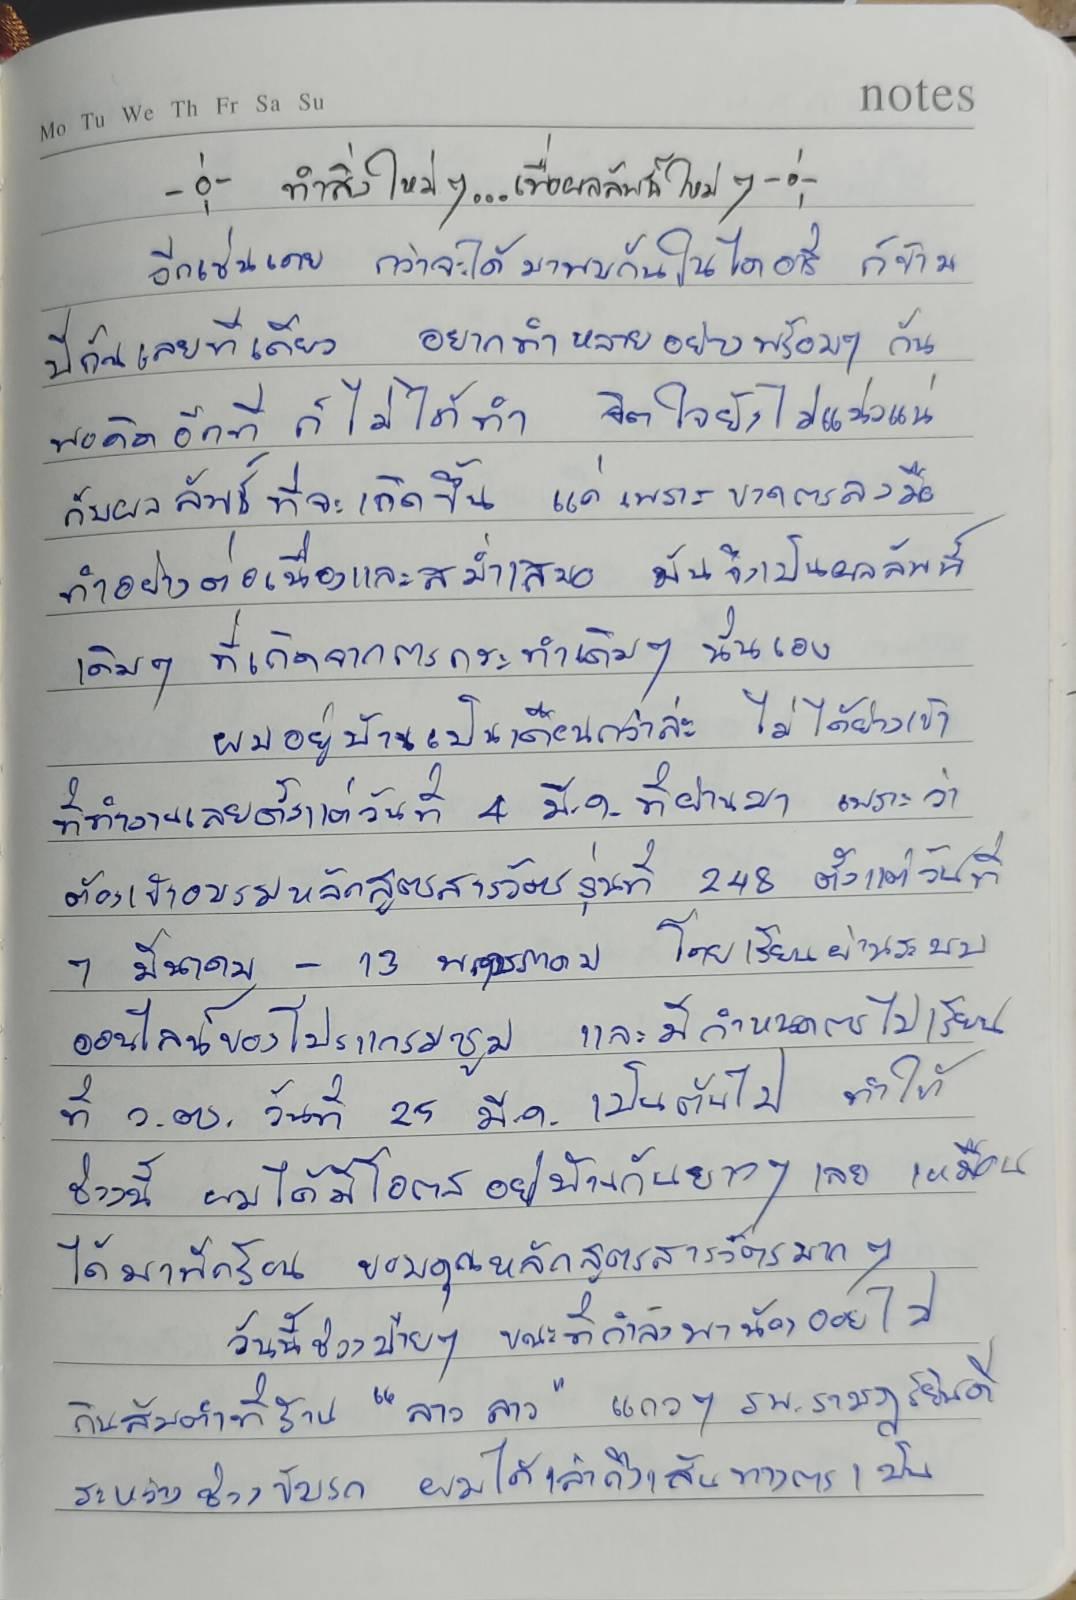 Mo Tu We Th Fr Sa Su
notes
ทำสิ่งใหม่ๆ...เพื่อผลลัพธ์ใหม่ๆ
อีกเช่นเคย กว่าจะได้มาพบกันในไดอารี่ ก็ข้าม
ปีกันเลยทีเดียว อยากทำหลายอย่างพร้อมๆ กัน
พอคิดอีกที ก็ไม่ได้ทำ จิตใจยังไม่แน่วแน่
กับผลลัพธ์ที่จะเกิดขึ้น แค่เพราะขาดการลงมือ
ทำอย่างต่อเนื่องและสม่ำเสมอ มันจึงเป็นผลลัพธ์
เดิมๆ ที่เกิดจากการกระทำเดิมๆ นั่นเอง
ผมอยู่บ้านเป็นเดือนกว่าล่ะ ไม่ได้ย่างเข้า
ที่ทำงานเลยตั้งแต่วันที่ 4 มี.ค. ที่ผ่านมา เพราะว่า
ต้องเข้าอบรมหลักสูตรสารวัตร รุ่นที่ 248 ตั้งแต่วันที่
7 มีนาคม - 13 พฤษภาคม โดยเรียนผ่านระบบ
ออนไลน์ของโปรแกรมซูม และมีกำหนดการไปเรียน
ที่ ว.ตร. วันที่ 25 มี.ค. เป็นต้นไป ทำให้
ช่วงนี้ ผมได้มีโอกาสอยู่บ้านกันยาวๆ เลย เหมือน
ได้มาพักร้อน ขอบคุณหลักสูตรสารวัตรมากๆ
วันนี้ช่วงบ่ายๆ ขณะที่กำลังพาน้องออยไป
กินส้มตำที่ร้าน "ลาว ลาว" แถวๆ รพ.ราษฎร์ยินดี
ระหว่างช่วงขับรถ ผมได้เล่าถึงเส้นทางการเป็น